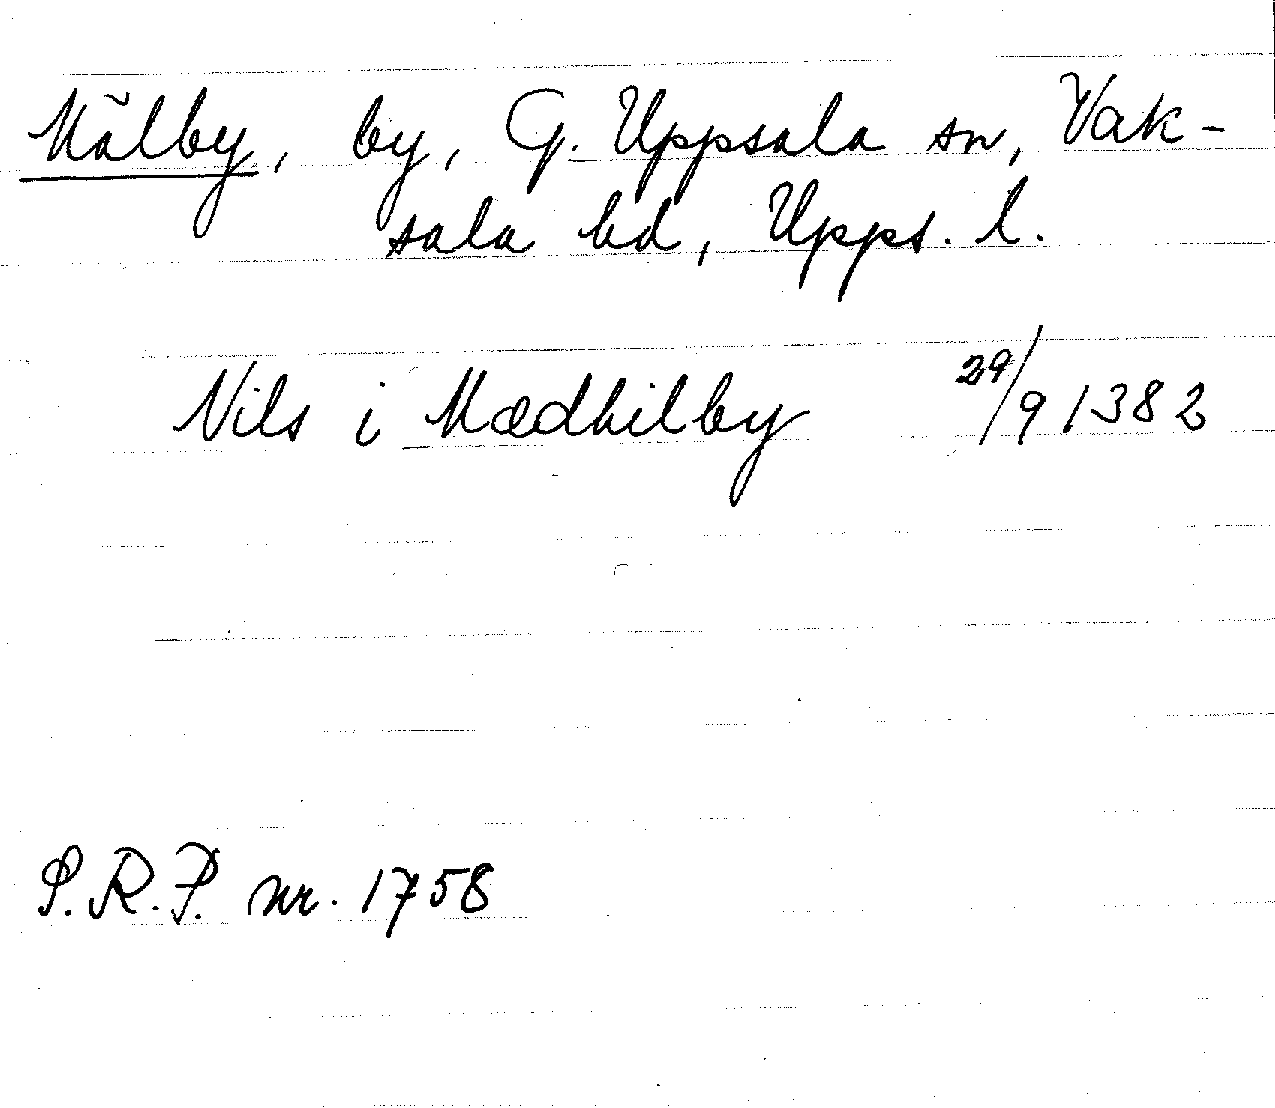 Mälby, by, G. Uppsala sn, Vak-
sala hd, Upps. l.
Nils i Mædhilby 29/9 1382
S.R.P. nr. 1758